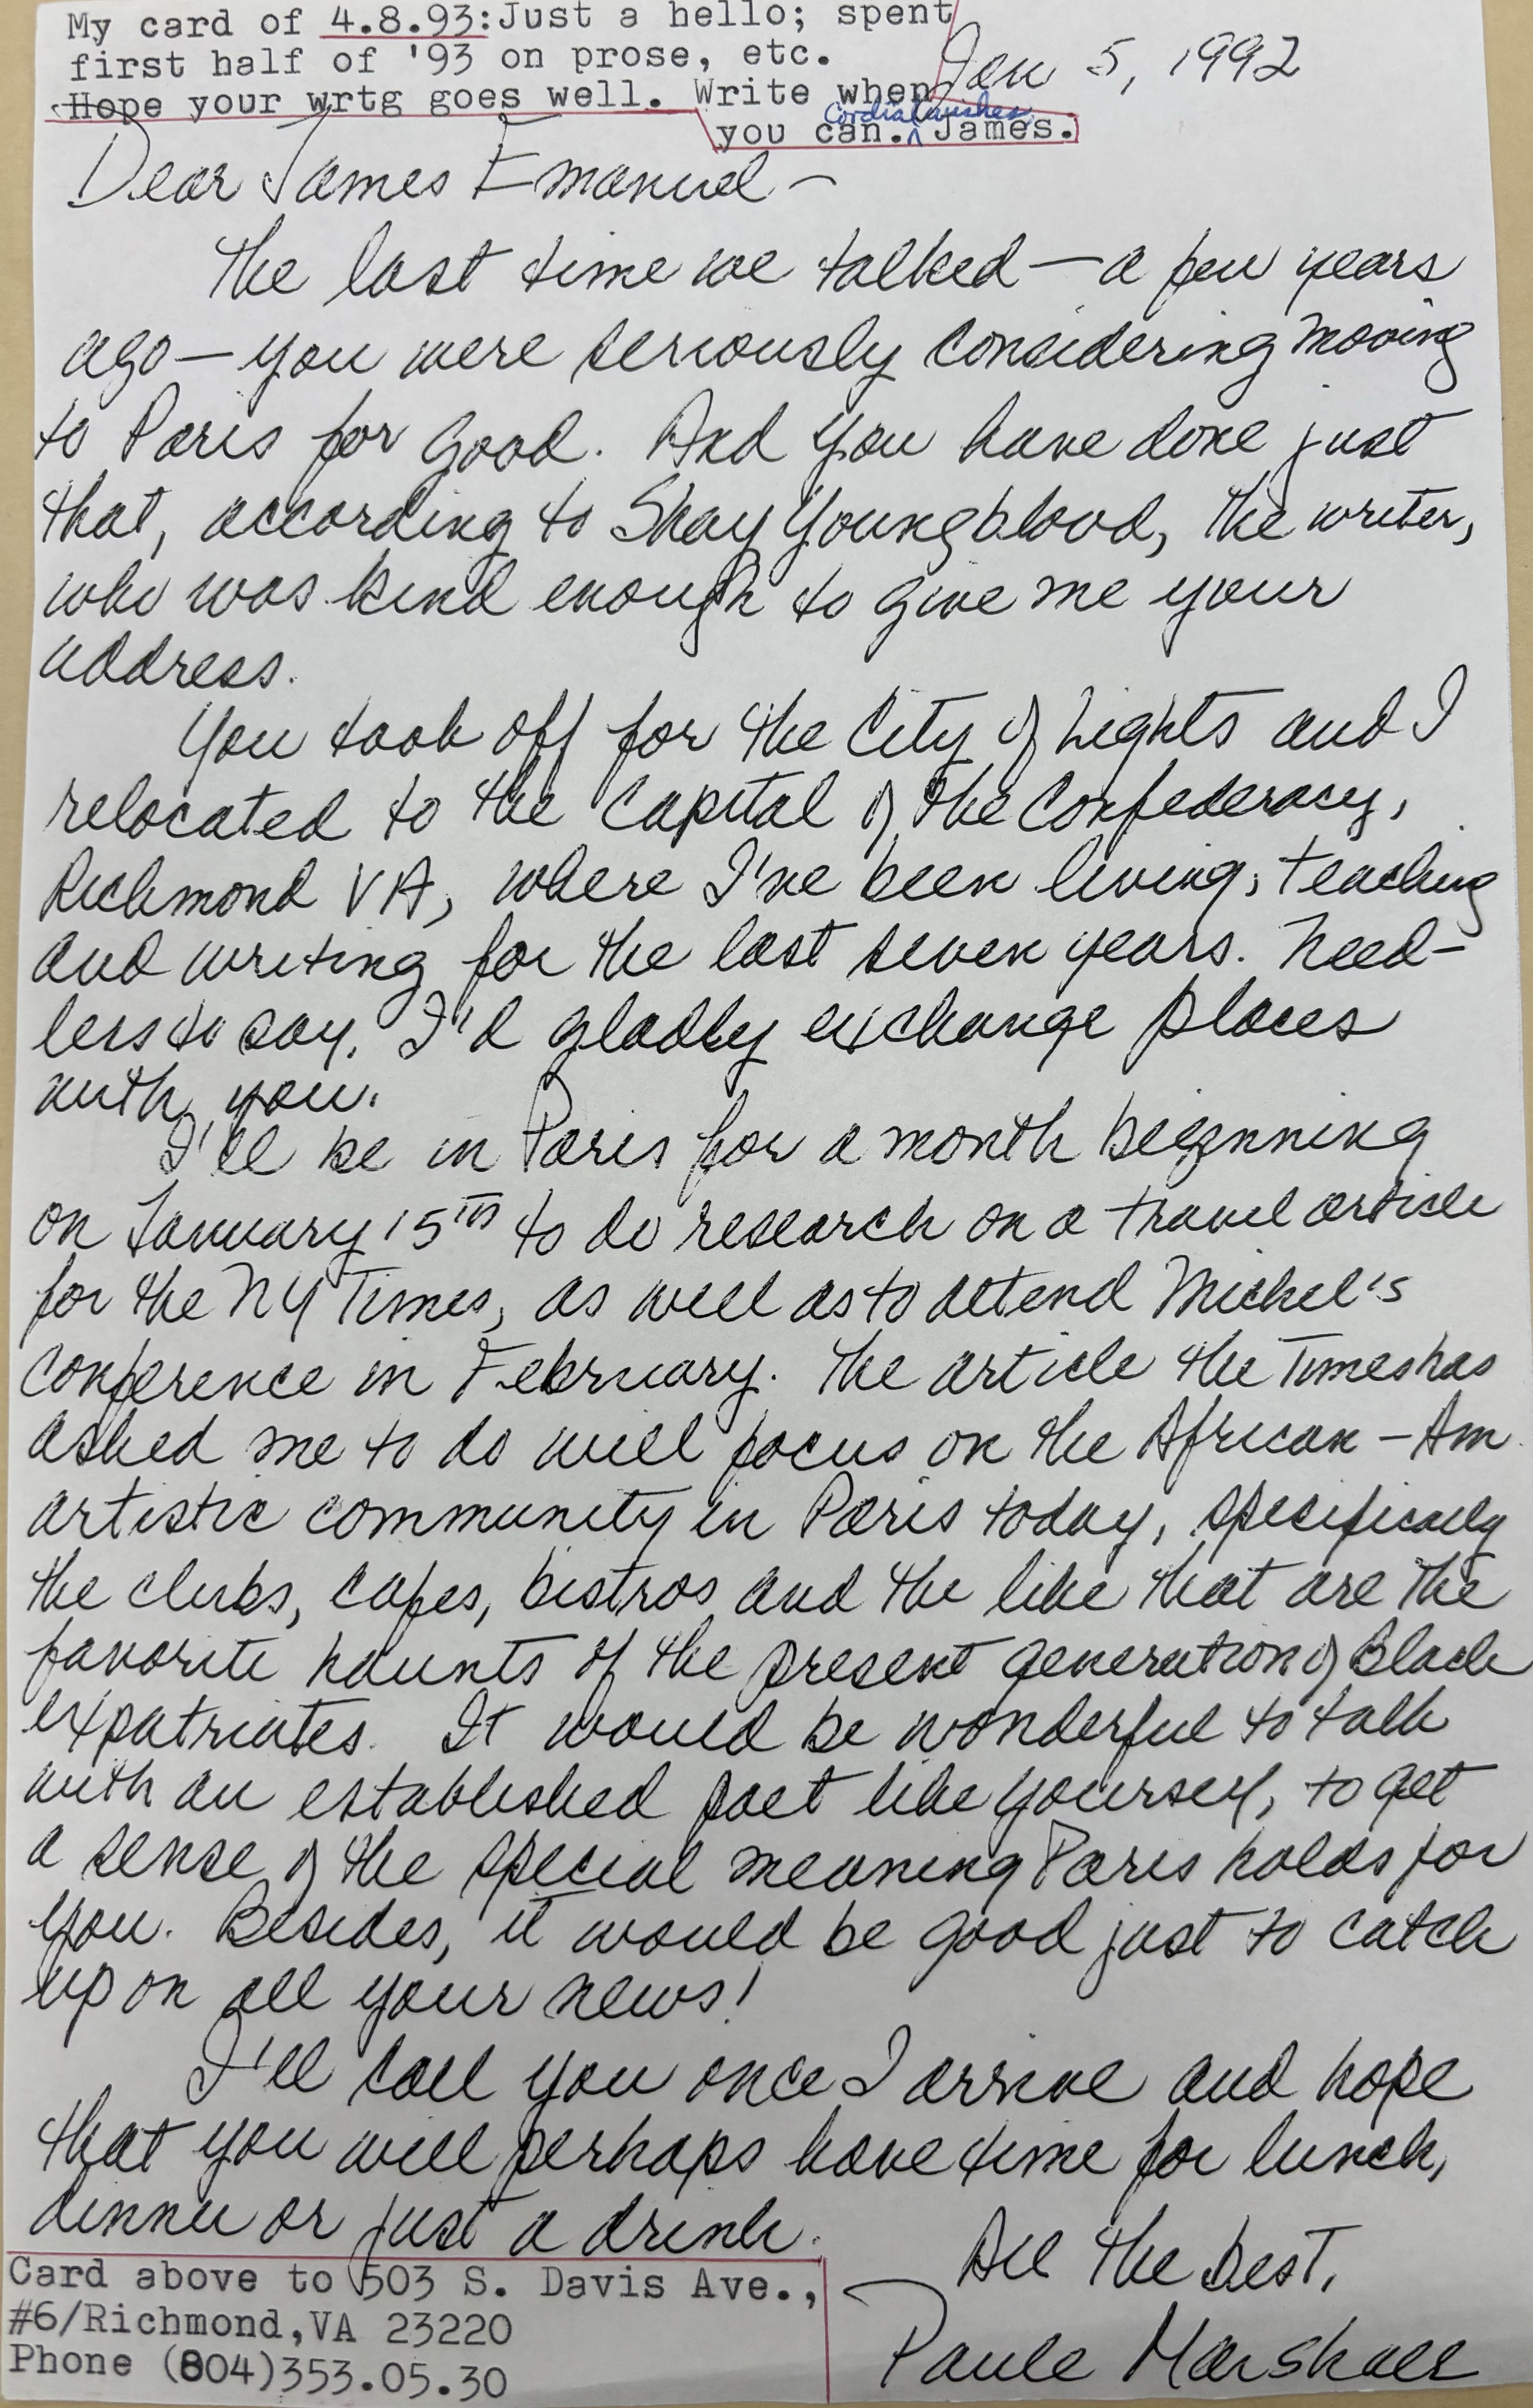 My card of 4.8.93:Just a hello; spent
first half of '93 on prose, etc.
Hope your wrtg goes well. Write when
you can. Cordial wishes James.
Jan 5, 1992
Dear James Emanuel —
The last time we talked — a few years
ago — you were seriously considering moving
to Paris for good. And you have done just
that, according to Shay Youngblood, the writer,
who was kind enough to give me your
address.
You took off for the City of Lights and I
relocated to the Capital of the Confederacy,
Richmond VA, where I've been living, teaching
and writing for the last seven years. Need-
less to say, I'd gladly exchange places
with you.
I'll be in Paris for a month beginning
on January 15th to do research on a travel article
for the NY Times, as well as to attend Michel's
conference in February. The article the Times has
asked me to do will focus on the African-Am.
artistic community in Paris today, specifically
the clubs, cafes, bistros and the like that are the
favorite haunts of the present generation of Black
expatriates. It would be wonderful to talk
with an established poet like yourself, to get
a sense of the special meaning Paris holds for
you. Besides, it would be good just to catch
up on all your news!
I'll call you once I arrive and hope
that you will perhaps have time for lunch,
dinner or just a drink.
All the best,
Paule Marshall
Card above to 503 S. Davis Ave.,
#6/Richmond,VA 23220
Phone (804)353.05.30